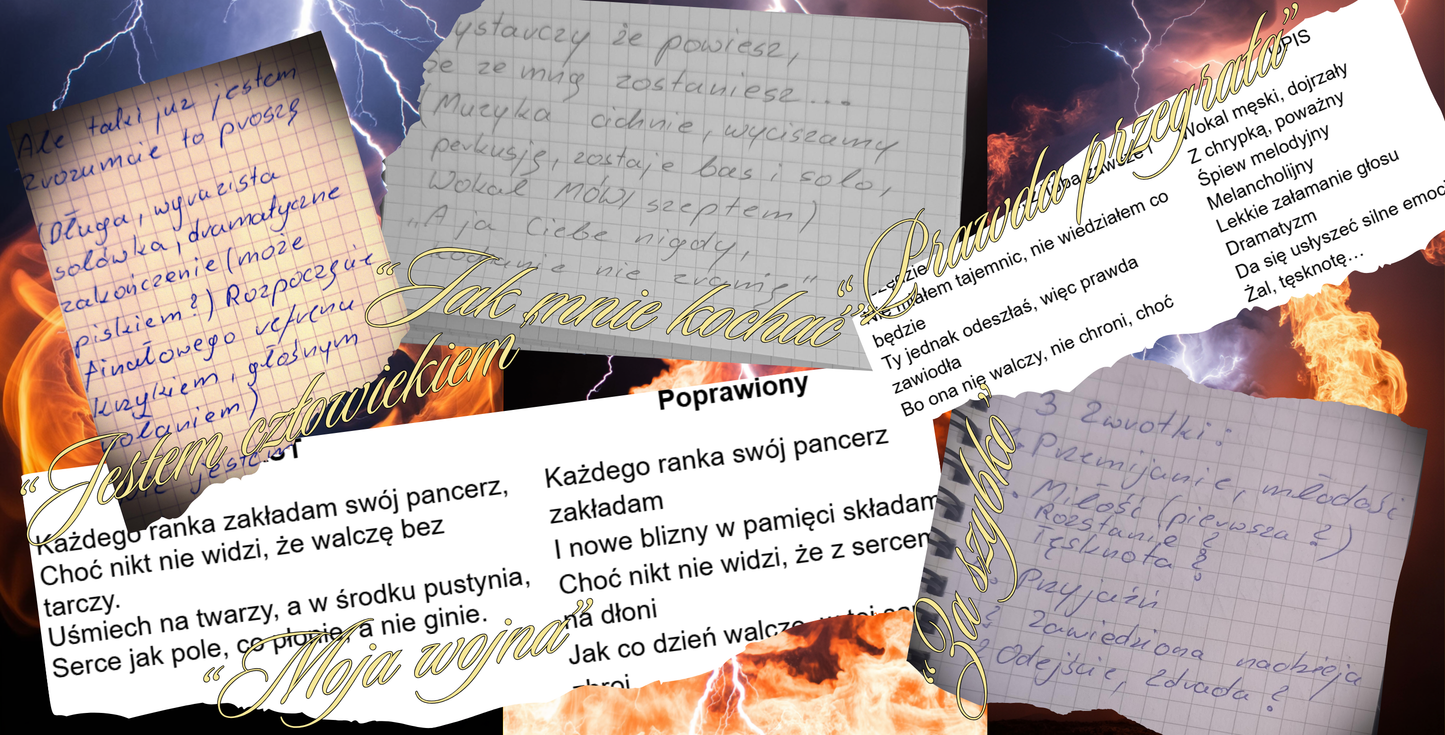 Ale taki już jestem
Zrozumcie to proszę
(Długa, wyrazista
solówka, dramatyczne
zakończenie (może
piskiem?) Rozpoczęcie
finałowego refrenu
krzykiem, głośnym
wołaniem)
“Jestem człowiekiem
ystarczy że powiesz,
że ze mną zostaniesz...
(Muzyka cichnie, wyciszamy
perkusję, zostaje bas i solo,
Wokal MÓWI szeptem)
„A ja Ciebie nigdy,
nie zranię"
“Jak mnie kochać“
“Prawda przegrała”
będzie
Nie miałem tajemnic, nie wiedziałem co
będzie
Ty jednak odeszłaś, więc prawda
zawiodła
Bo ona nie walczy, nie chroni, choć
PIS
Wokal męski, dojrzały
Z chrypką, poważny
Śpiew melodyjny
Melancholijny
Lekkie załamanie głosu
Dramatyzm
Da się usłyszeć silne emoc
Żal, tęsknotę...
ST
Każdego ranka zakładam swój pancerz,
Choć nikt nie widzi, że walczę bez
tarczy.
Uśmiech na twarzy, a w środku pustynia,
Serce jak pole, co płonie, a nie ginie.
“Moja wojna”
Poprawiony
Każdego ranka swój pancerz
zakładam
I nowe blizny w pamięci składam
Choć nikt nie widzi, że z sercem
na dłoni
Jak co dzień walczę w tej
zbroi
“Za szybko”
3 Zwrotki:
Przemijanie, młodość
Miłość (pierwsza?)
Rozstanie?
Tęsknota?
Przyjaźń
? Zawiedziona nadzieja
? Odejście, zdrada?